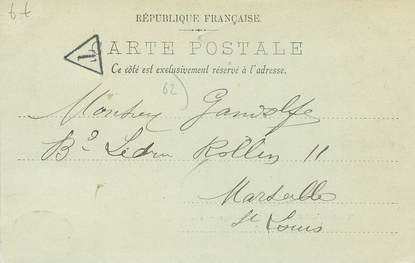 6f
RÉPUBLIQUE FRANÇAISE
CARTE POSTALE
T
Ce côté est exclusivement réservé à l'adresse.
62)
Gandolfe
Bd Ledru Rollin 11
Marseille
St Louis